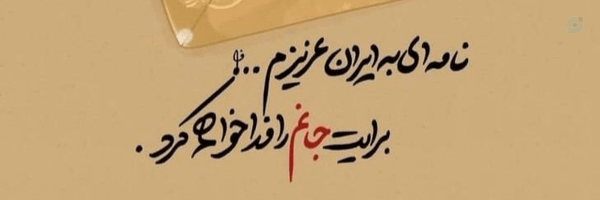 نامه‌ای به ایران عزیزم ...
برایت جانم را فدا خواهم کرد .